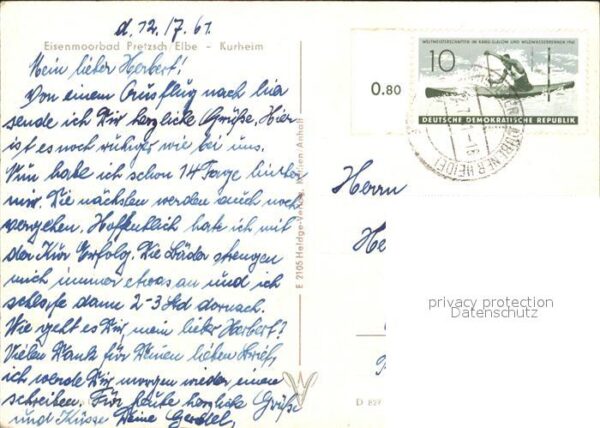 d. 12./7. 61.
Eisenmoorbad Pretzsch/Elbe - Kurheim
Mein lieber Herbert!
Von einem Ausflug nach hier
sende ich Dir herzliche Grüße. Hier
ist es noch ruhiger wie bei uns.
Nun habe ich schon 14 Tage hinter
mir. Die nächsten werden auch noch
vergehen. Hoffentlich habe ich mit
der Kur Erfolg. Die Bäder strengen
mich immer etwas an und ich
schlafe dann 2-3 Std darnach.
Wie geht es Dir mein lieber Herbert?
Vielen Dank für Deinen lieben Brief,
ich werde Dir morgen wieder einen
schreiben. Für heute herzliche Grüße
und Küsse Deine
E 2105 Heldge-Verlag, Köthen/Anhalt
0.80
WELTMEISTERSCHAFTEN IM KANU-SLALOM UND WILDWASSERRENNEN 1961
10
DEUTSCHE DEMOKRATISCHE REPUBLIK
Herrn
He
privacy protection
Datenschutz
D 827